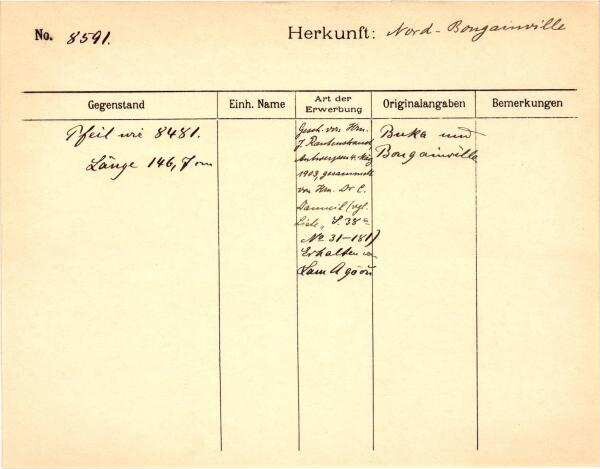 No. 8591. Herkunft: Nord-Bougainville
Gegenstand Einh. Name Art der Erwerbung Originalangaben Bemerkungen
Pfeil wie 8481.
Länge 146,7 cm
Gesch. von Hrn.
J. Rautenstrauch,
Antwerpen 4. Aug
1903, gesammelt
von Hrn. Dr C.
(vgl.
Liste, S. 38
No 31-181)
Erhalten
Buka und
Bougainville